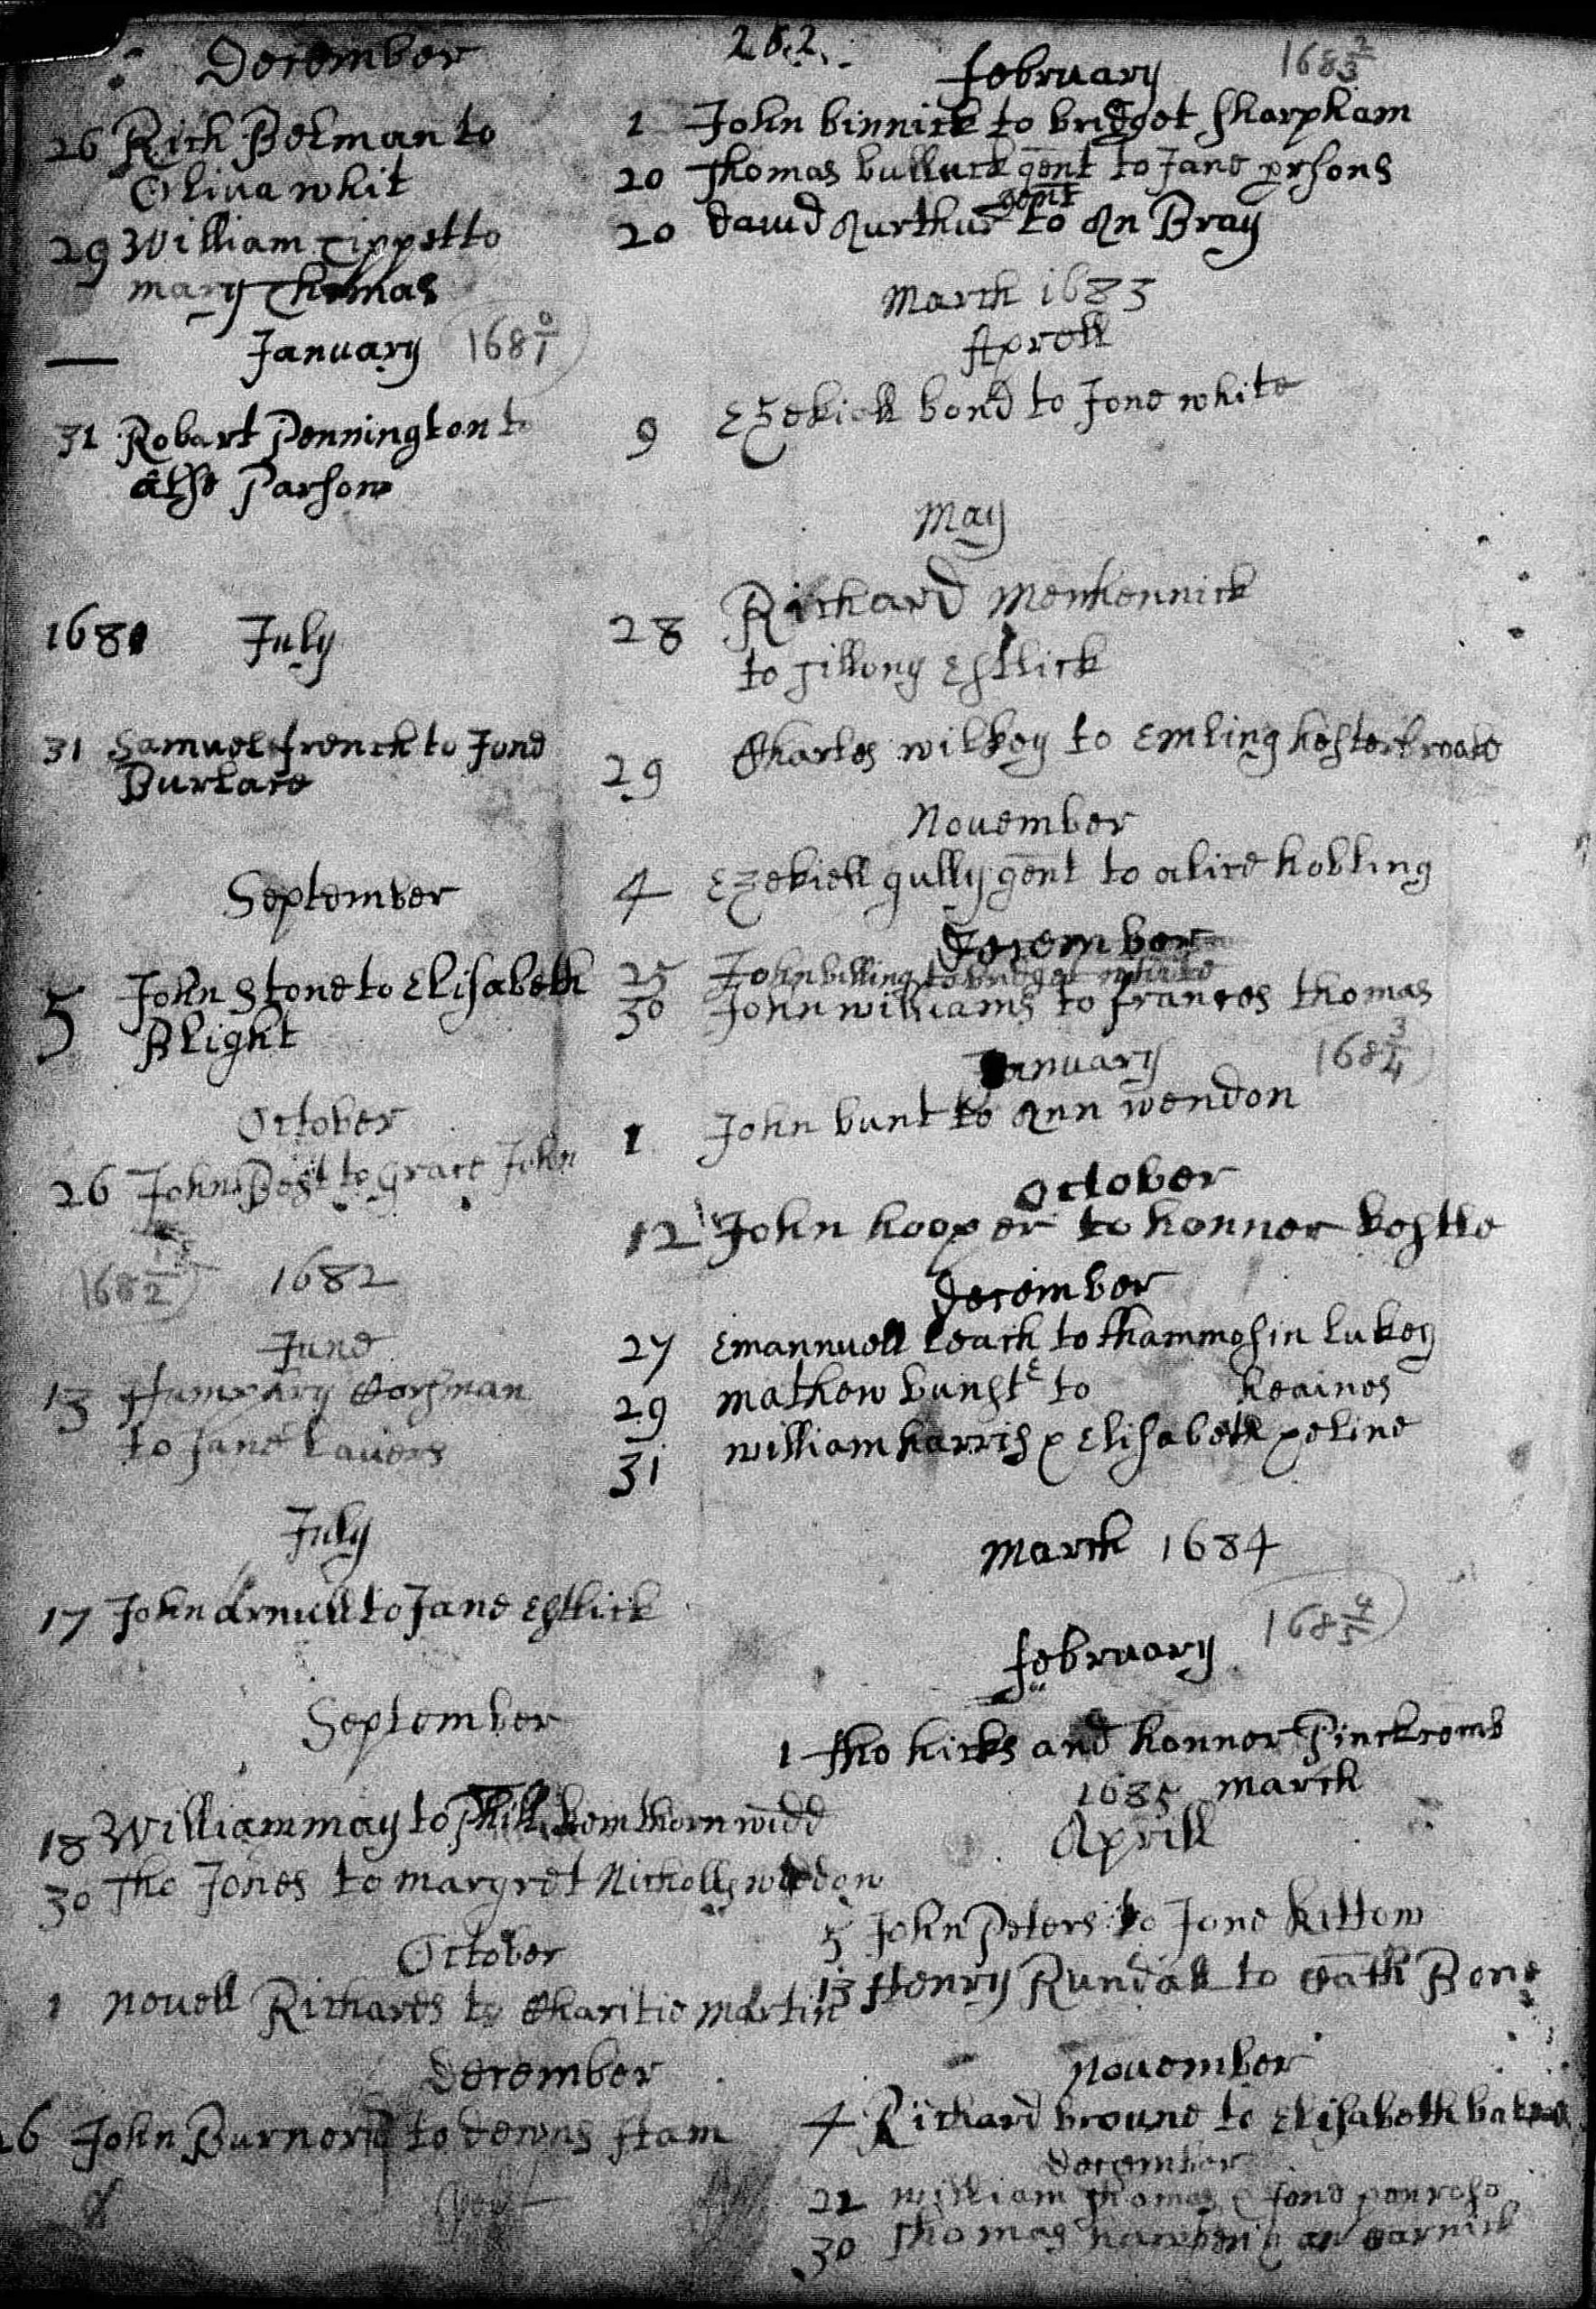 262
December
26 Rich Belman to
Oliva whit
29 William Tippet to
mary Thomas
January 168 0/1
31 Robart Pennington to
alse Parson
1681 July
31 Samuel french to Jone
Burlace
September
5 John Stone to Elisabeth
Blight
October
26 John Best to Grace John
168 1/2 1682
June
13 Humphry Corsman
to Jane Lauers
July
17 John Arnull to Jane Estlick
September
18 William may to Phill kemthorn widd
30 Tho Jones to margret Nicholls widdow
October
1 Nouell Richards to Charitie Martin
December
26 John Burnord to Dewns Ham
February 168 2/3
1 John binnick to bridget Sharpham
20 Thomas bulluck gent to Jane prsons
20 dauid Aurthur gent to An Bray
March 1683
Aprell
9 Ezekiell bond to Jone white
May
28 Richard Menhennick
to Jillony Estlick
29 Charles wilkey to Emling hesterbroake
Nouember
4 Ezekiell gully gent to alice hobling
December
25 John billing to bridget
30 John williams to frances thomas
January 168 3/4
1 John bunt to Ann wendon
October
12 John hooper to honner kostle
December
27 Emannuell Leach to thammosin Lukey
29 mathew bunste to heaines
31 william harris p Elisabeth peline
March 1684
February 168 4/5
1 Tho hicks and honner Pinckcomb
1685 March
Aprill
5 John Peters to Jone kittow
13 Henry Rundall to Cath Bone
Nouember
4 Richard broune to Elisabeth
December
22 William thomas & Jone penrose
30 Thomas an carnick